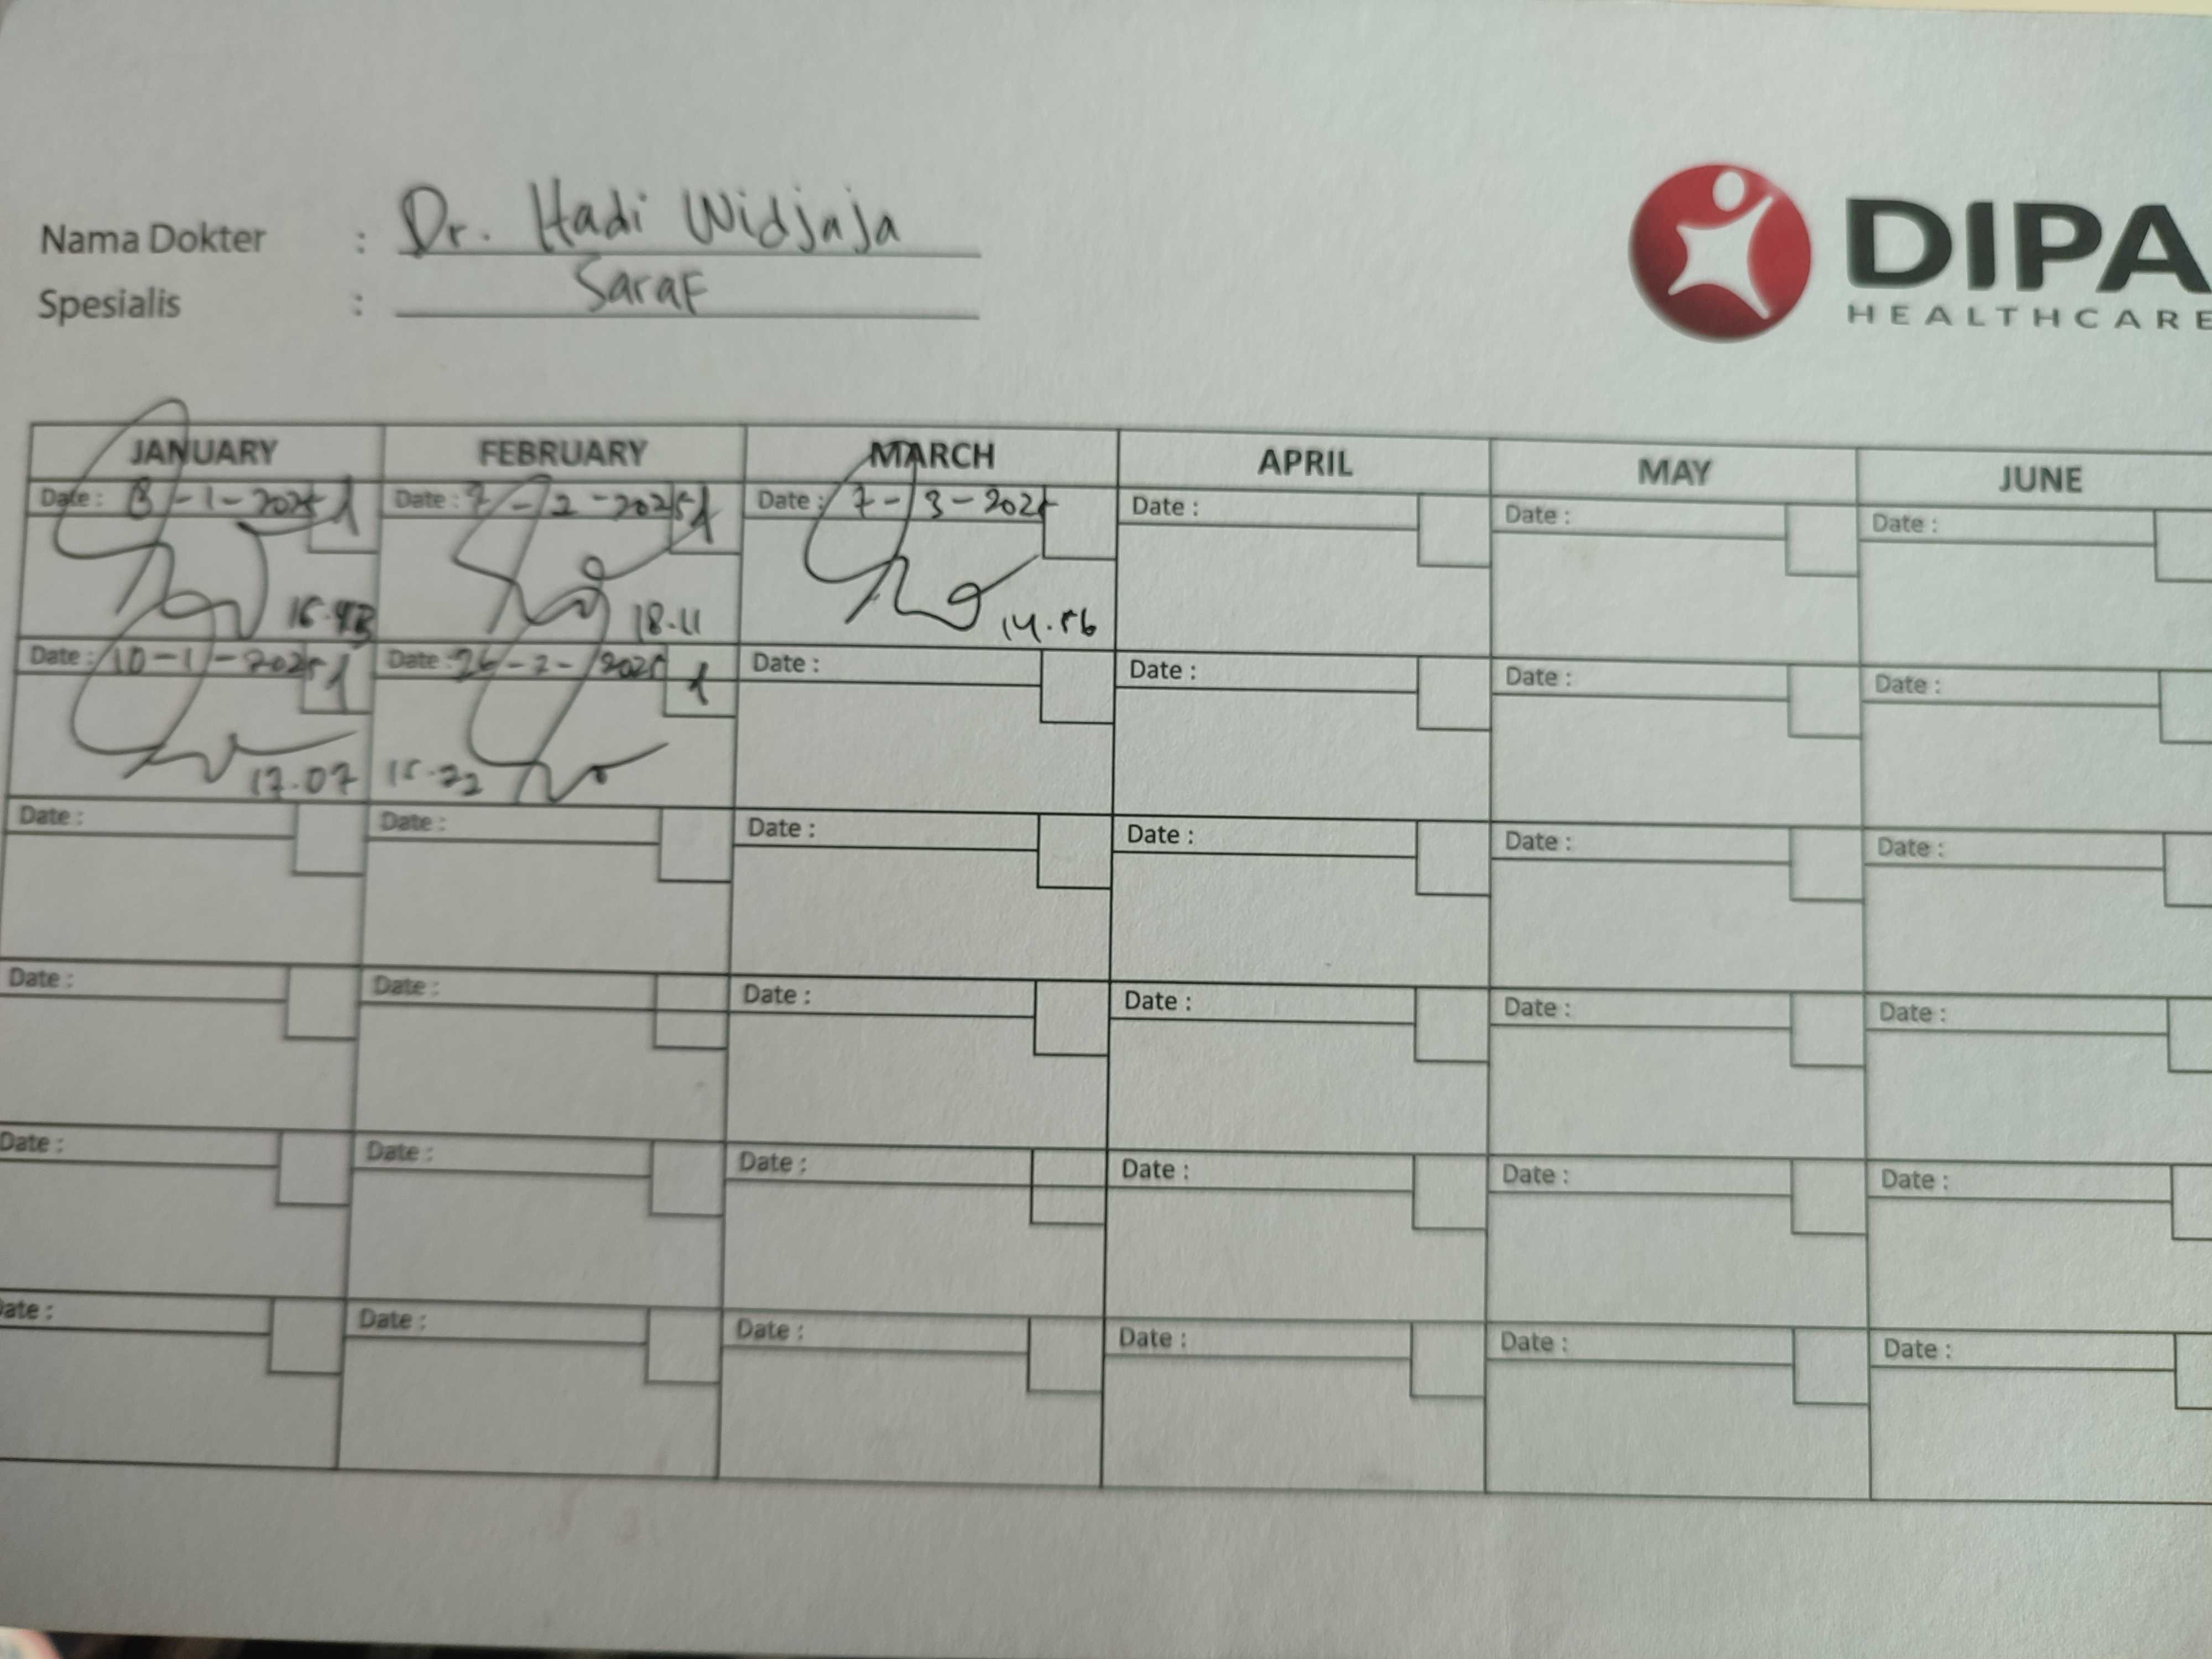 Nama Dokter : Dr. Hadi Widjaja
Spesialis : Saraf
DIPA
HEALTHCARE
JANUARY FEBRUARY MARCH APRIL MAY JUNE
Date : 8-1-2025 1 Date : 7-2-2025 1 Date : 7-3-2025 Date : Date : Date :
18.11 14.56
Date : 10-1-2025 1 Date : 26-2-2025 1 Date : Date : Date : Date :
17.07 15.22
Date : Date : Date : Date : Date : Date :
Date : Date : Date : Date : Date : Date :
Date : Date : Date : Date : Date : Date :
Date : Date : Date : Date : Date : Date :